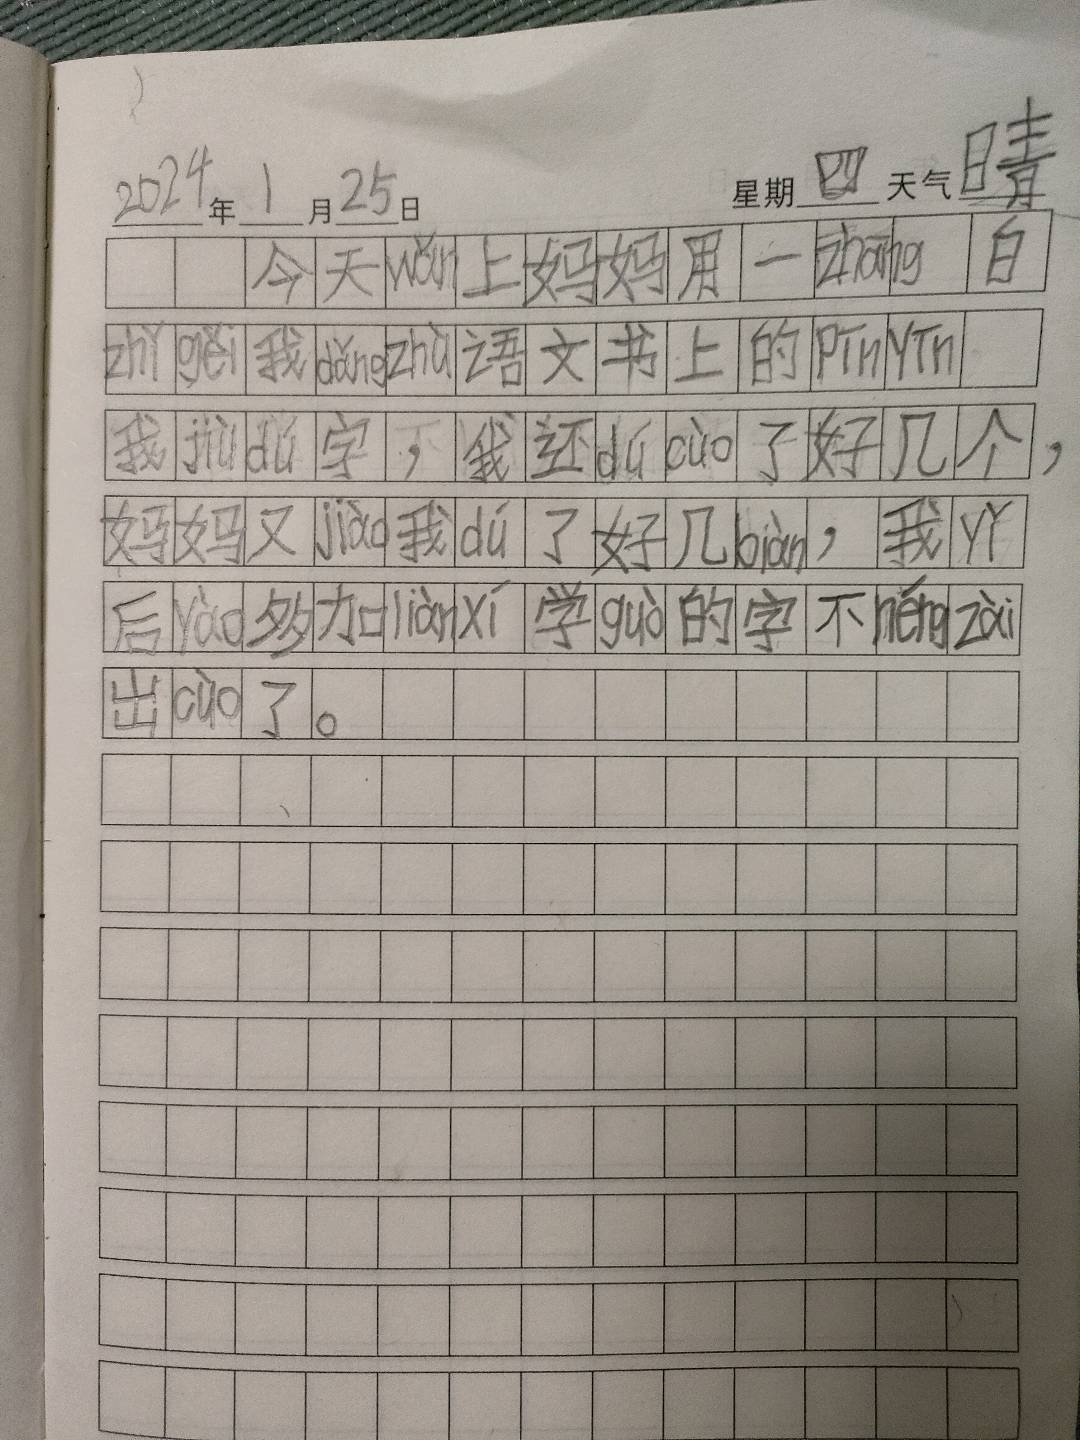 2024年1月25日 星期四 天气晴
今天wǎn上妈妈用一zhāng白
zhǐ gěi我dǎng zhù语文书上的pīn yīn
我jiù dú字，我还dú cùo了好几个，
妈妈又jiào我dú了好几biàn，我yǐ
后yào多加liàn xí学guò的字不néng zài
出cùo了。